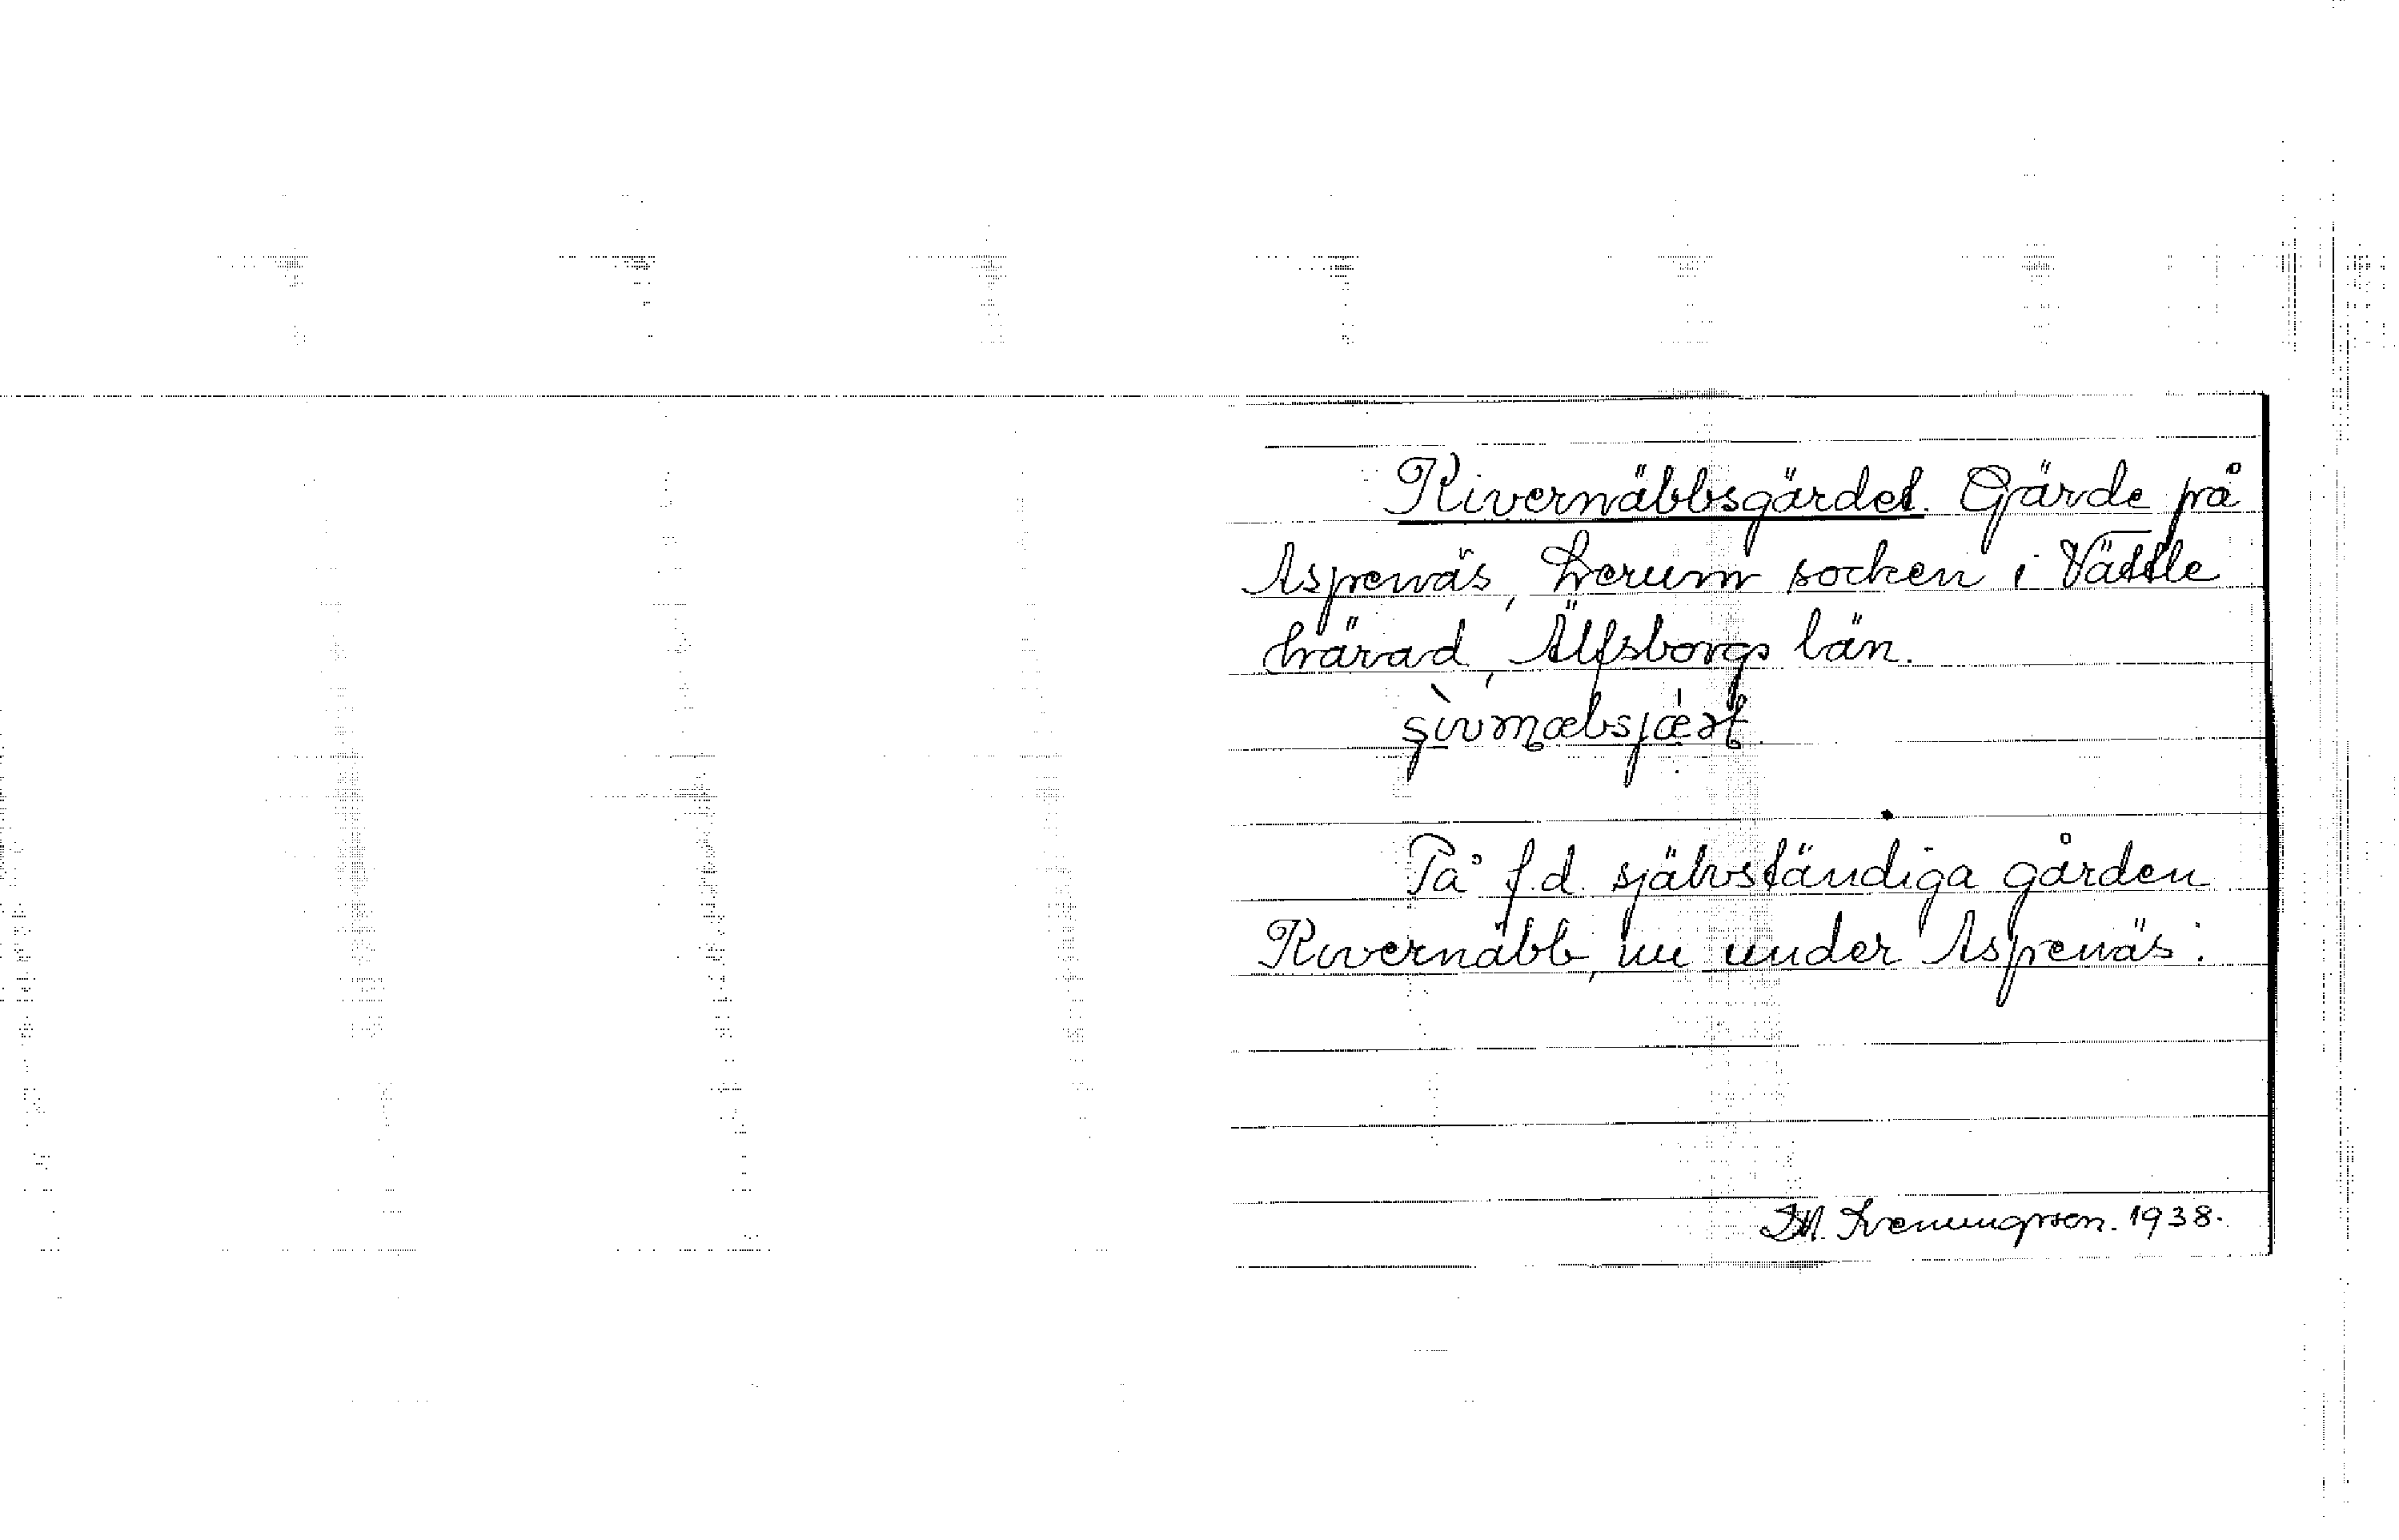 Rivernäbbsgärdet. Gärde på
Aspenäs, Lerum socken i Vättle
härad, Älfsborgs län.
På f.d. självständiga gården
Rivernäbb, nu under Aspenäs.
1938.